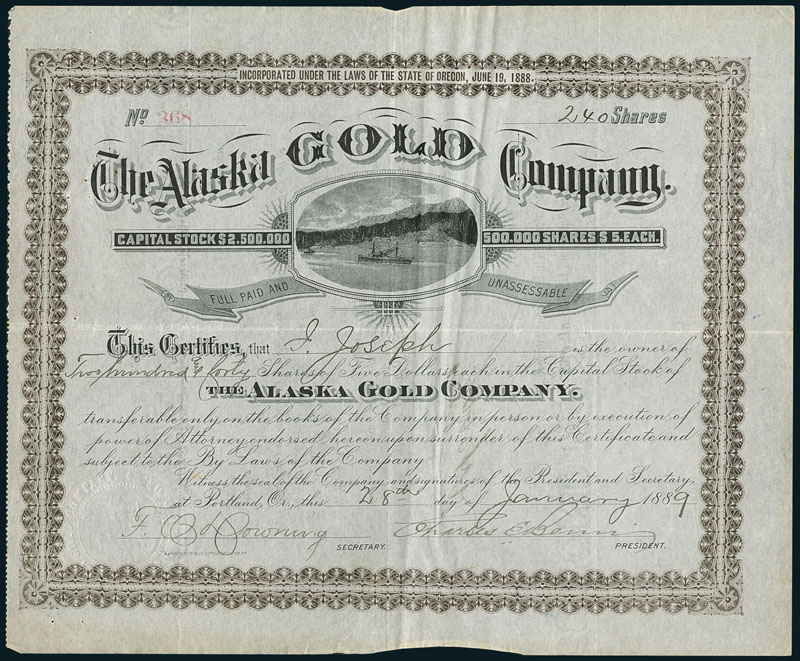 INCORPORATED UNDER THE LAWS OF THE STATE OF OREGON, JUNE 19, 1888.
No 368 240 Shares
The Alaska GOLD Company.
CAPITAL STOCK $2,500,000 500,000 SHARES $5. EACH.
FULL PAID AND UNASSESSABLE
This Certifies, that I. Joseph is the owner of
Two hundred & forty Shares of Five Dollars each in the Capital Stock of
THE ALASKA GOLD COMPANY.
transferable only on the books of the Company in person or by execution of
power of Attorney endorsed hereon upon surrender of this Certificate and
subject to the By Laws of the Company
Witness the seal of the Company and signatures of the President and Secretary,
at Portland, Or., this 28th day of January 1889
F. Downing Charles E.
SECRETARY. PRESIDENT.